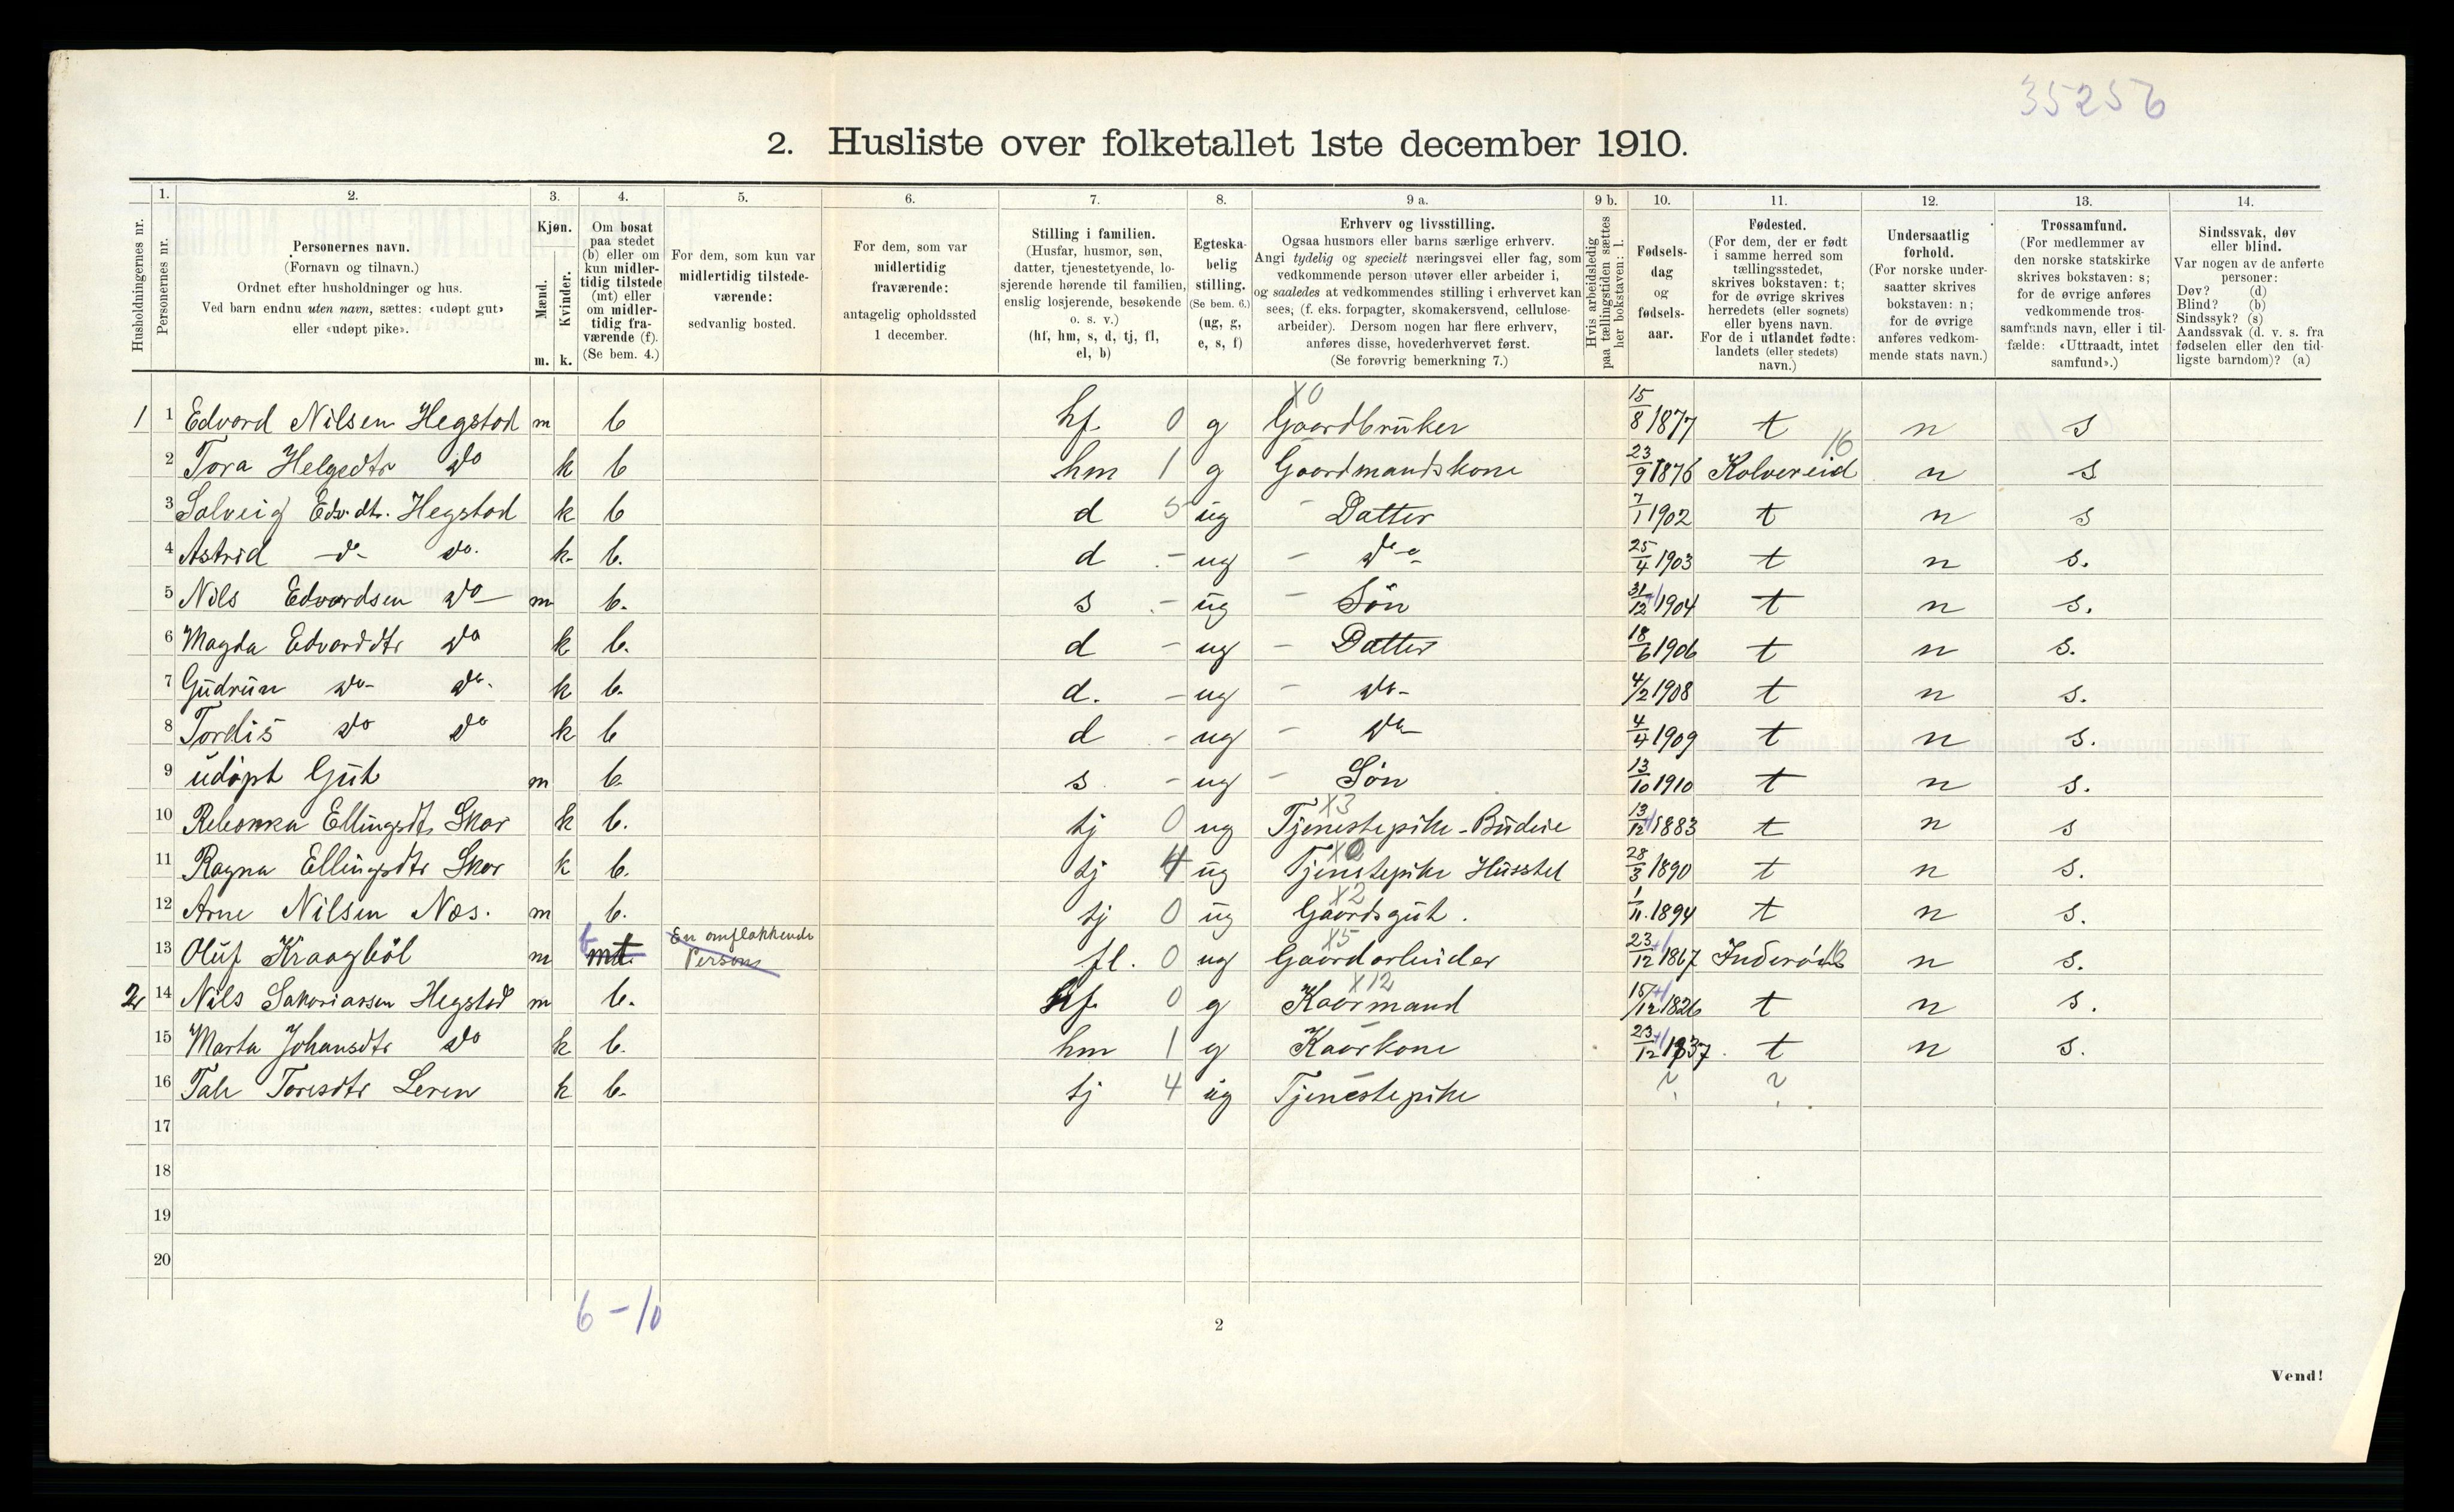 35256
2. Husliste over folketallet 1ste december 1910.
Husholdningernes nr.
1. Personernes nr.
2. Personernes navn. (Fornavn og tilnavn.) Ordnet efter husholdninger og hus. Ved barn endnu uten navn, sættes: «udøpt gut» eller «udøpt pike».
3. Kjøn. Mænd. m. Kvinder. k.
4. Om bosat paa stedet (b) eller om kun midlertidig tilstede (mt) eller om midlertidig fraværende (f). (Se bem. 4.)
5. For dem, som kun var midlertidig tilstedeværende: sedvanlig bosted.
6. For dem, som var midlertidig fraværende: antagelig opholdssted 1 december.
7. Stilling i familien. (Husfar, husmor, søn, datter, tjenestetyende, losjerende hørende til familien, enslig losjerende, besøkende o. s. v.) (hf, hm, s, d, tj, fl, el, b)
8. Egteskabelig stilling. (Se bem. 6.) (ug, g, e, s, f)
9 a. Erhverv og livsstilling. Ogsaa husmors eller barns særlige erhverv. Angi tydelig og specielt næringsvei eller fag, som vedkommende person utøver eller arbeider i, og saaledes at vedkommendes stilling i erhvervet kan sees; (f. eks. forpagter, skomakersvend, cellulosearbeider). Dersom nogen har flere erhverv, anføres disse, hovederhvervet først. (Se forøvrig bemerkning 7.)
9 b. Hvis arbeidsledig paa tællingstiden sættes her bokstaven: l.
10. Fødselsdag og fødselsaar.
11. Fødested. (For dem, der er født i samme herred som tællingsstedet, skrives bokstaven: t; for de øvrige skrives herredets (eller sognets) eller byens navn. For de i utlandet fødte: landets (eller stedets) navn.)
12. Undersaatlig forhold. (For norske undersaatter skrives bokstaven: n; for de øvrige anføres vedkommende stats navn.)
13. Trossamfund. (For medlemmer av den norske statskirke skrives bokstaven: s; for de øvrige anføres vedkommende trossamfunds navn, eller i tilfælde: «Uttraadt, intet samfund».)
14. Sindssvak, døv eller blind. Var nogen av de anførte personer: Døv? (d) Blind? (b) Sindssyk? (s) Aandssvak (d. v. s. fra fødselen eller den tidligste barndom)? (a)
1 1 Edvard Nilsen Hegstad m b hf. 0 g X0 Gaardbruker 15/8 1877 t n s
2 Tora Helgedtr do k b hm 1 g Gaardmandskone 23/9 1876 Kolvereid 16 n s
3 Solveig Edv.dtr. Hegstad k b d 5 ug - Datter 7/1 1902 t n s
4 Astrid -do- do. k b. d - ug - do 25/4 1903 t n s.
5 Nils Edvardsen do m b. s - ug - Søn 31/12 1904 t n s.
6 Magda Edvarddtr do k b. d - ug - Datter 18/6 1906 t n s.
7 Gudrun do- do. k b. d. - ug - do- 4/2 1908 t n s.
8 Tordis do do k b d - ug - do 4/4 1909 t n s.
9 udøpt Gut m b. s - ug - Søn 13/10 1910 t n s.
10 Rebekka Ellingsdtr Skar k b. tj 0 ug X3 Tjenestepike - Budeie 13/12 1883 t n s
11 Ragna Ellingsdtr Skar k b. tj 4 ug X0 Tjenestepike Husstel 28/3 1890 t n s.
12 Arne Nilsen Næs. m b. tj 0 ug X2 Gaardsgut. 1/11. 1894 t n s.
13 Oluf Kraagböl m b mt. En omflakkende Person fl. 0 ug X5 Gaardarbeider 23/12 1867 Inderöen 16 n s.
2 14 Nils Sakariassen Hegstad m b. hf. 0 g X12 Kaarmand 15/12 1826 t n s.
15 Marta Johansdtr do k b. hm 1 g Kaarkone 23/12 1837. t n s.
16 Tale Toresdtr Leren k b. tj 4 ug Tjenestepike ? ?
17
18
19
20
6-10
2
Vend!